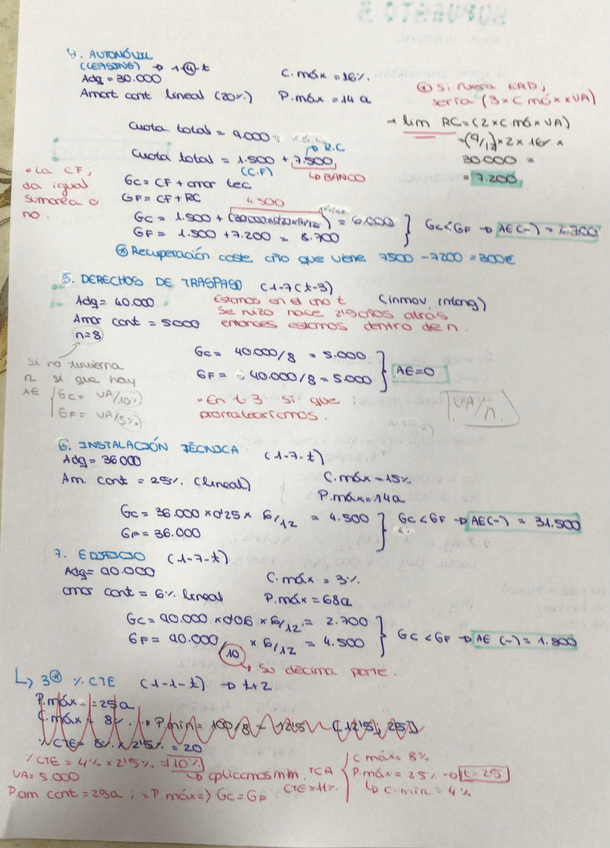 SUPUESTO 5
4. AUTOMÓVIL
(LEASING) → 1-4-t
Adq = 30.000
C.máx = 16%
Amort cont lineal (20%)
P.máx = 14 a
* Si fuera ERD;
sería (3 x C máx x VA)
→ lim RC = (2 x C máx x VA)
= (9/12) x 2 x 16% x
30.000 =
= 7.200
Cuota total = 9.000
Cuota total = 1.500 + 7.500
(C.F)
→ R.C
↳ BANCO
• La CF;
da igual
sumarla o
no.
Gc = CF + amor tec
GF = CF + RC
4500
Gc = 1.500 + (30.000x0'20x9/12) = 6.000
GF = 1.500 + 7.200 = 8.700
Gc < GF → AE(-) = 2.700
* Recuperación coste año que viene 7500 - 7200 = 300€
5. DERECHOS DE TRASPASO (1-7(t-3)
Adq = 40.000
Estamos en el año t
(inmov. intang)
Se hizo hace 2/3 años atrás
Amor cont = 5000
entonces estamos dentro de n.
n = 8
Si no tuviera
n sí que hay
AE
Gc = VA/10%
GF = VA/5%
Gc = 40.000/8 = 5.000
GF = 40.000/8 = 5.000
AE = 0
• En t-3 sí que
prorratearíamos.
VA/n.
6. INSTALACIÓN TÉCNICA (1-7-t)
Adq = 36000
Am cont = 25% (lineal)
C.máx = 15%
P.máx = 14a
Gc = 36.000 x 0'25 x 6/12 = 4.500
GF = 36.000
Gc < GF → AE(-) = 31.500
7. EDIFICIO (1-7-t)
Adq = 90.000
C.máx = 3%
amor cont = 6% lineal
P.máx = 68a
Gc = 90.000 x 0'06 x 6/12 = 2.700
GF = 90.000/10 x 6/12 = 4.500
Gc < GF → AE (-) = 1.800
→ Su décima parte.
↳ 3ª) % CTE (1-1-t) → t+2
P.máx = 25a
C.máx = 8% → P.min = 100/8 = 12'5 [12'5; 25]
% CTE = 8% x 2'5% = 20
% CTE = 4% x 2'5% = 10%
↳ aplicamos min.
TCA
CTE = 11%
C.máx = 8%
P.máx = 25% → t = 25
↳ C.min = 4%
VA = 5.000
P am cont = 25a ; = P.máx => Gc = GF